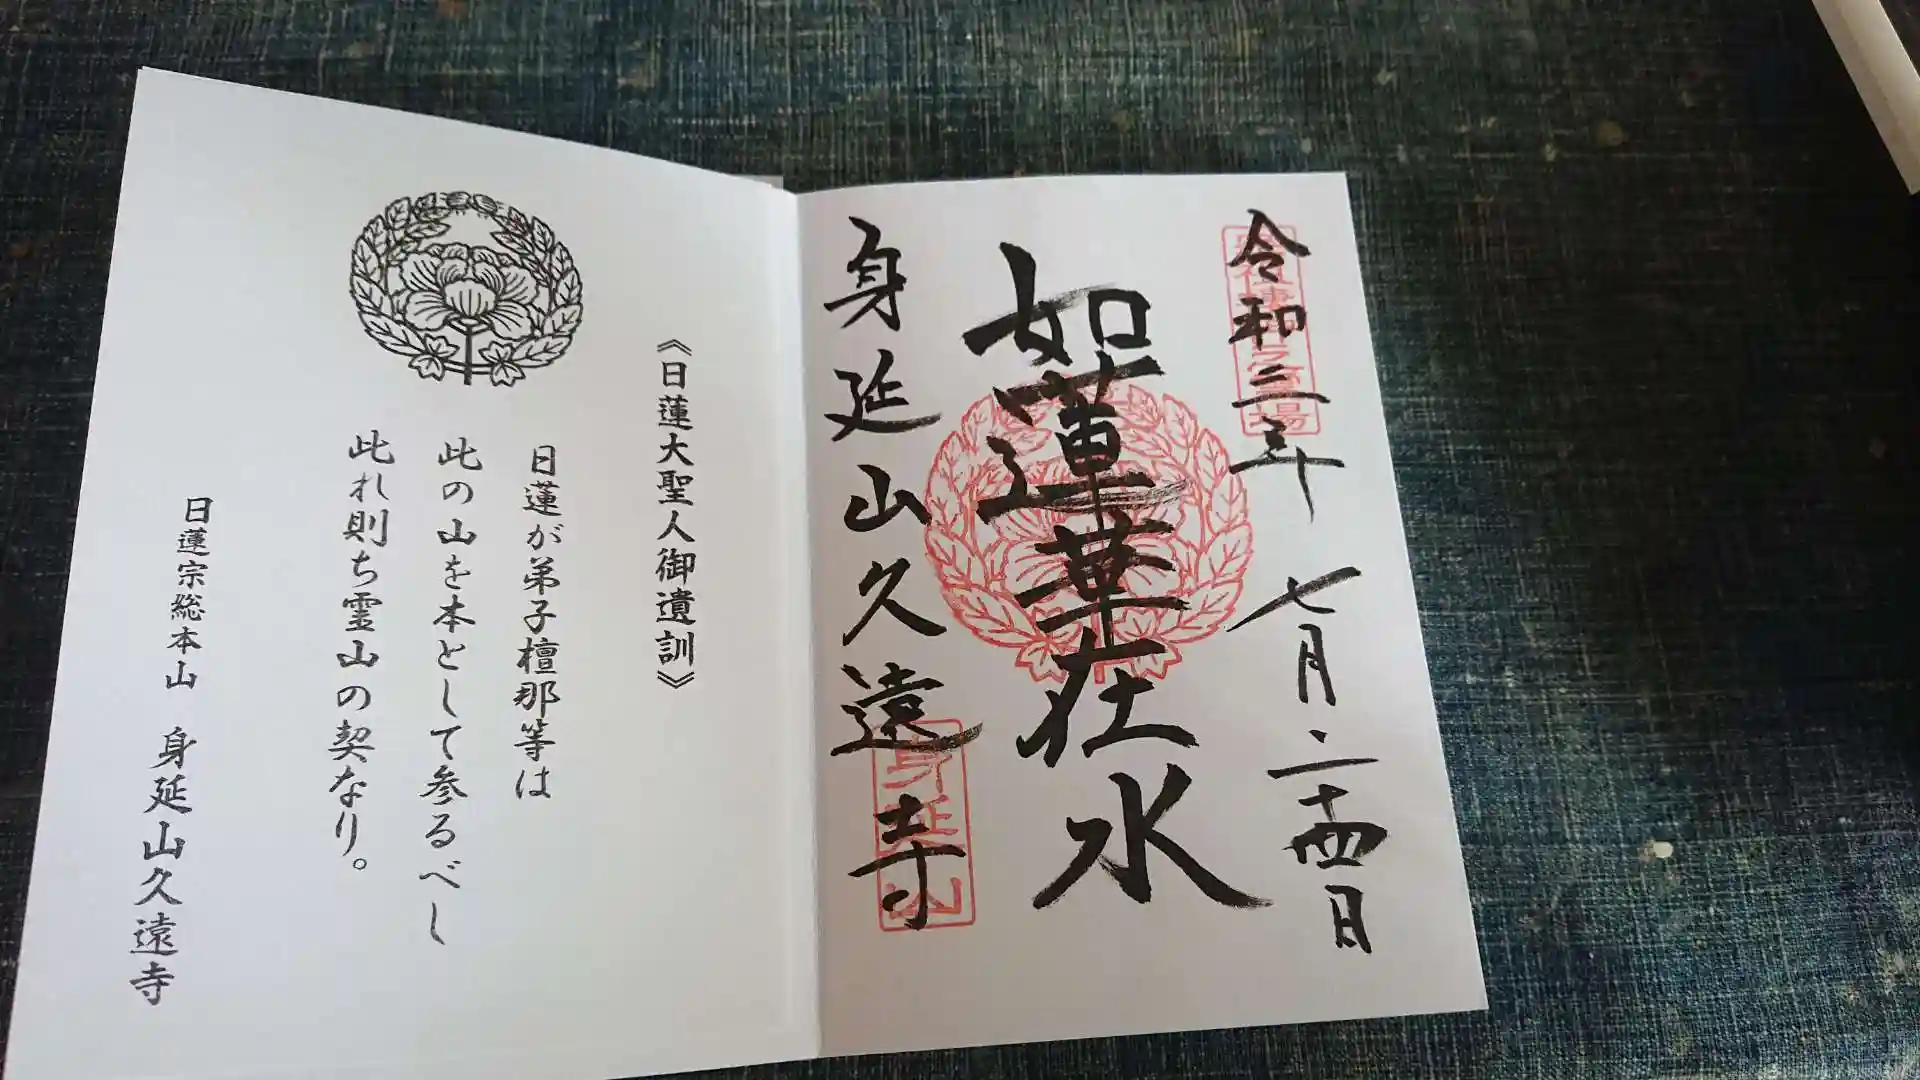 令和二年 七月二十四日
如蓮華在水
身延山久遠寺
身延山
《日蓮大聖人御遺訓》
日蓮が弟子檀那等は
此の山を本として参るべし
此れ則ち霊山の契なり。
日蓮宗総本山 身延山久遠寺